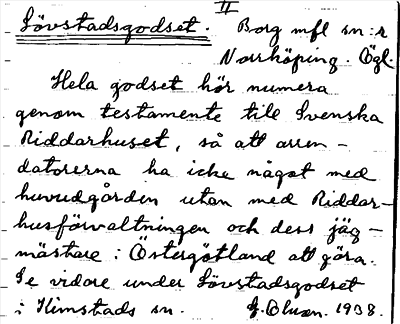 II
Lövstadsgodset. Borg mfl sn:r
Norrköping. Ögl.
Hela godset hör numera
genom testamente till Svenska
Riddarhuset, så att arren-
datorerna ha icke något med
huvudgården utan med Riddar-
husförvaltningen och dess jäg-
mästare i Östergötland att göra.
Se vidare under Lövstadsgodset
i Kimstads sn. 1938.